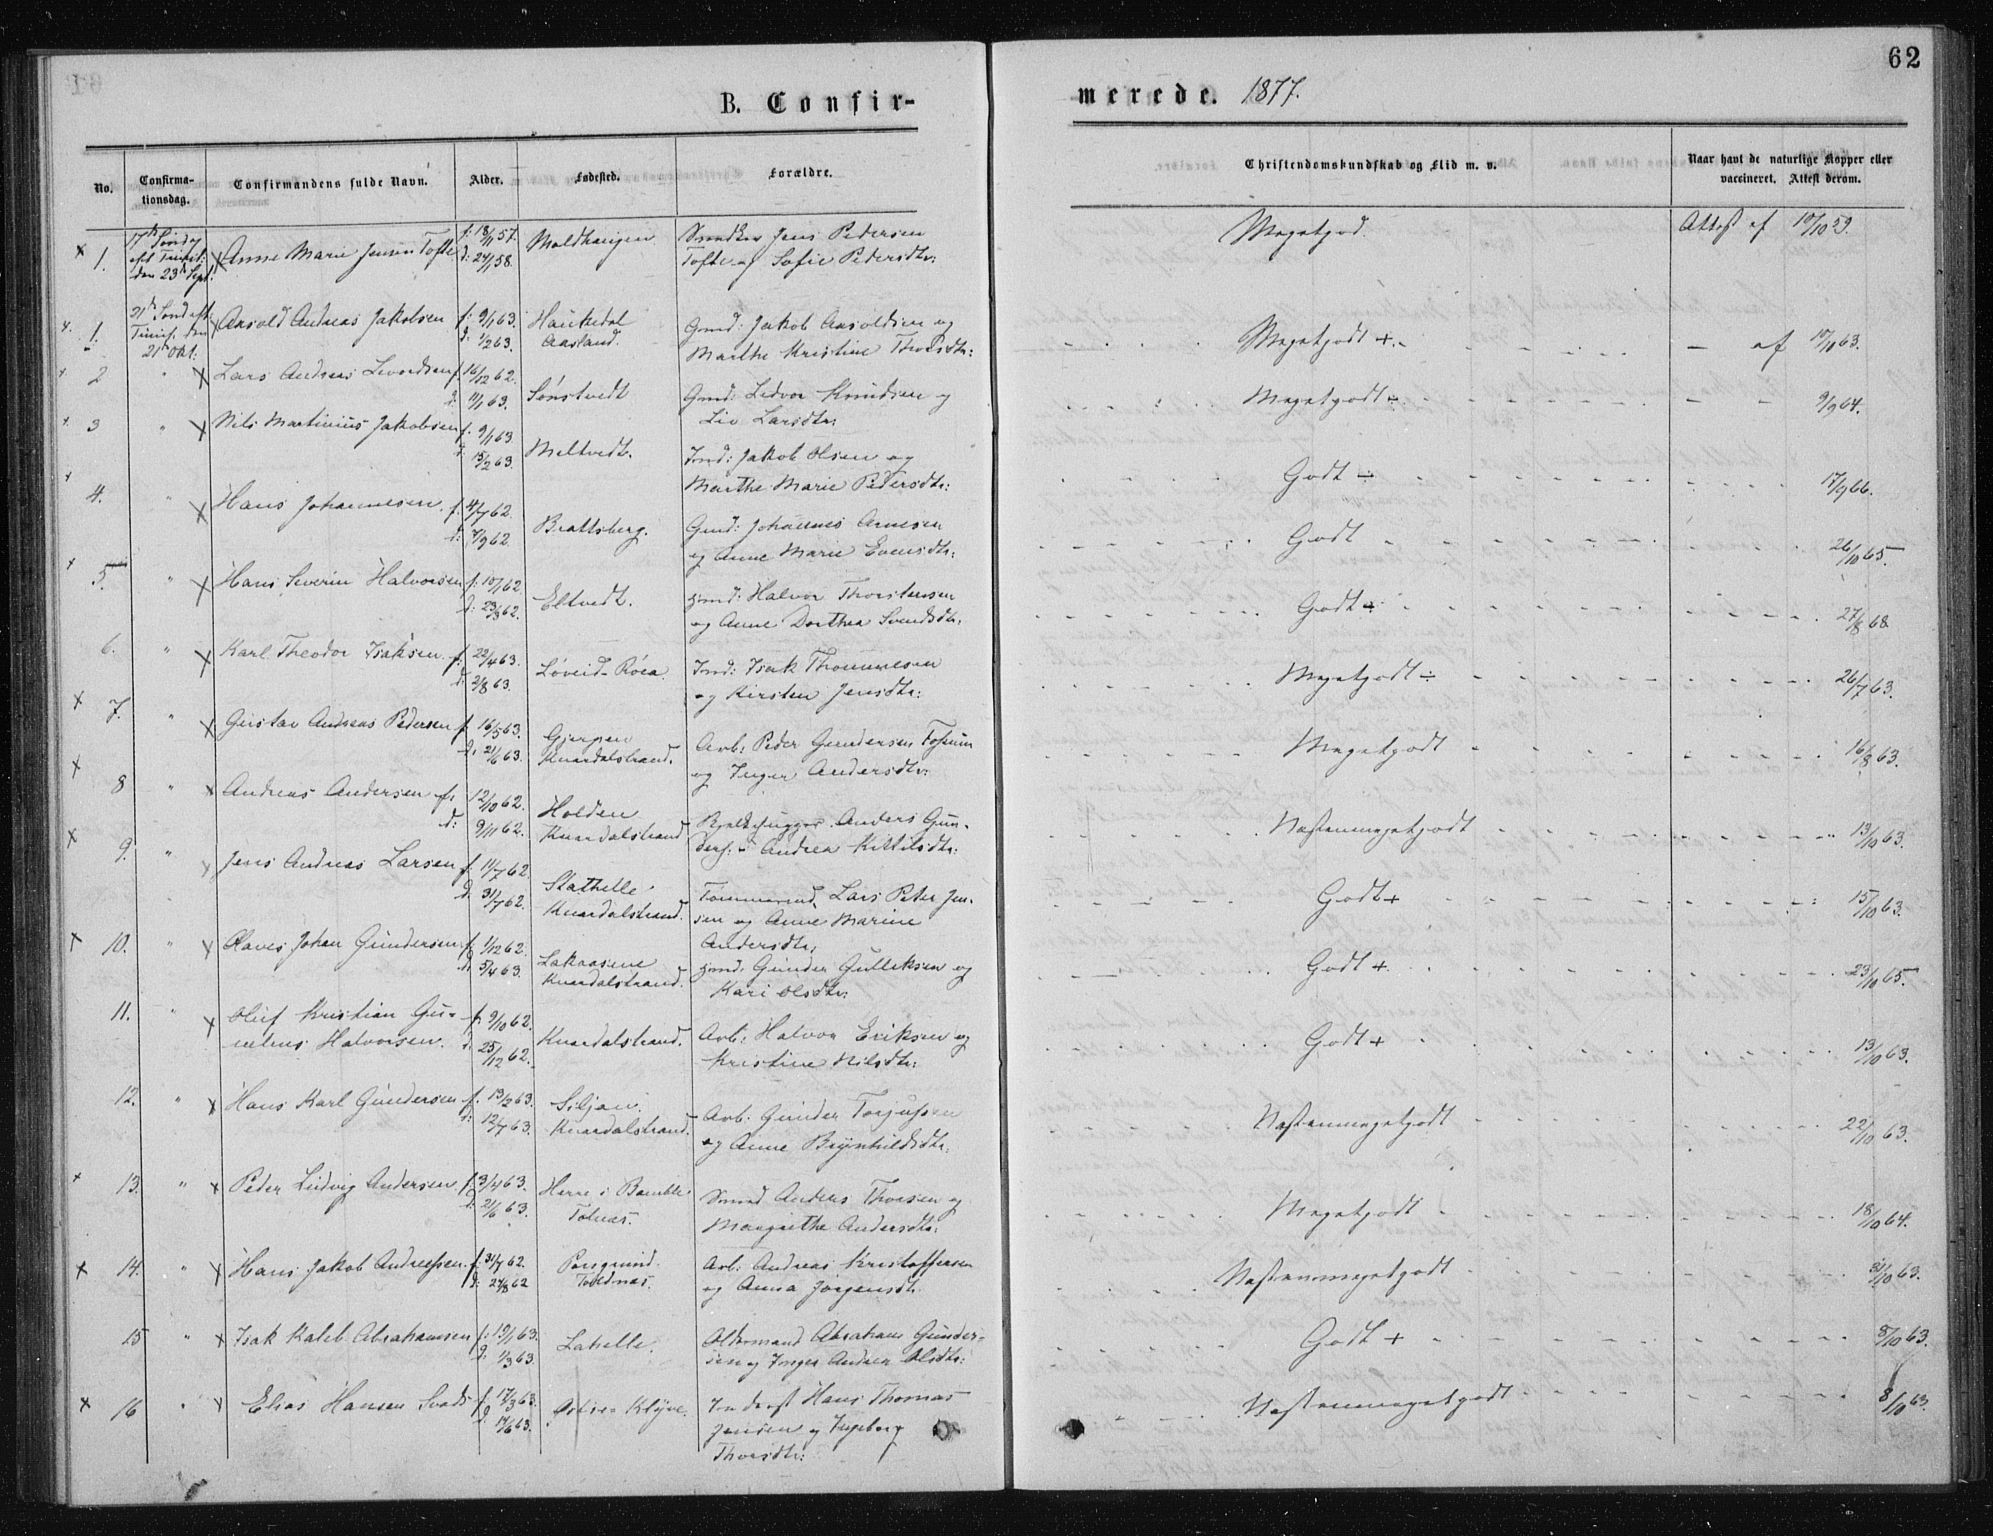 62
B. Confir-
merede. 1877.
No. Confirma-tionsdag. Confirmandens fulde Navn. Alder. Fødested. Forældre. Christendomskundskab og Flid m. v. Naar havt de naturlige Kopper eller vaccineret. Attest derom.
1. 17de Sönd. eft. Trinit: den 23de Sept. Anne Marie Jensen Tofte f: 18/11 57. Moldhaugen Smeden Jens Pedersen Megetgod. Attest af 10/10 59.
d: 24/1 58. Tofte og Sofie Pedersdtr:
1. 21de Sönd eft. Trinit. den 21de Okt: Aasold Andreas Jakobsen f: 9/1 63. Haukedal Gmd: Jakob Aasoldsen og Megetgodt +. - af 10/11 63.
d: 1/2 63. Aasland. Marthe Kristine Thorsdtr:
2 " Lars Andreas Levordsen f. 16/12 62. Sönstvedt Gmd: Ledvor Knudsen og Megetgodt ÷ - - 9/9 64.
d. 11/1 63. Liv Larsdtr:
3 " Nils Martinius Jakobsen f. 9/1 63 Meltvedt. Ind: Jakob Olsen og Godt ÷ 17/9 66.
d. 15/2 63. Marthe Marie Pedersdtr:
4. " Hans Johannesen. f. 4/7 62. Brattsberg. Gmd: Johannes Arnesen Godt 26/10 65.
d: 7/9 62. og Anne Marie Evensdtr:
5 " Hans Severin Halvorsen f: 10/1 62. Eltvedt. Hmd: Halvor Thorstensen Godt + 27/8 68
d: 23/3 62. og Anne Dorthea Svendsdtr.
6. " Karl Theodor Isaksen f: 22/4 63. Löveid-Röra Ind: Isak Thommesen Megetgodt ÷ 26/7 63.
d: 2/8 63. og Kirsten Jensdtr:
7. " Gustav Andreas Pedersen f. 16/5 63. Gjerpen Arb: Peder Gundersen Fossum Megetgodt 16/8 63.
d: 21/6 63. Knardalstrand. og Inger Andersdtr:
8 " Andreas Andersen f. 12/10 62. Holden Bjelkehugger Anders Gun- Næstenmegetgodt 13/10 63.
d: 9/11 62. Knardalstrand ders: og Andrea Kittilsdtr:
9. " Jens Andreas Larsen f. 14/7 62 Stathelle Tömmermd. Lars Peter Jen- Godt + 15/10 63.
d. 31/7 62. Knardalstrand. sen og Anne Marine
Andersdtr:
10. " Olaves Johan Gundersen f. 1/12 62. Lakaasene Hmd. Gunder Gulleksen og Godt +. 23/10 65.
d. 5/4 63. Knardalstrand. Kari Olsdtr:
11. " Oluf Kristian Gu- f. 9/10 62. Knardalstrand. Arb: Halvor Eriksen og Godt + 13/10 63.
nelius Halvorsen. d. 25/12 62. Kristine Nilsdtr:
12. " Hans Karl Gundersen f. 13/2 63. Siljan. Arb. Gunder Torjussen Næstenmegetgodt 22/10 63.
d: 12/7 63. Knardalstrand. og Anne Brynhildsdtr.
13. " Peder Ludvig Andersen f. 3/4 63. Herre i Bamble Smed Anders Thorsen og Megetgodt 18/10 64.
d. 21/6 63. Tolnæs. Margrethe Andersdtr:
14. " Hans Jakob Andreassen f: 31/7 62. Porsgrund. Arb: Andreas Kristoffersen Næstenmegetgodt 31/10 63.
d: 24/8 62 Toldnæs. og Anna Jörgensdtr.
15 " Isak Kaleb Abrahamsen f: 19/1 63. Lahelle. Oldermand Abraham Gunder- Godt + 5/10 63.
d: 1/3 63. sen og Inger Andrea Olsdtr:
16 " Elias Hansen Svads f. 17/3 63. Östre Klyve. Inderst Hans Thomas Næstenmegetgodt 8/10 63.
d. 14/6 63. Jensen og Ingeborg
Thorsdtr: